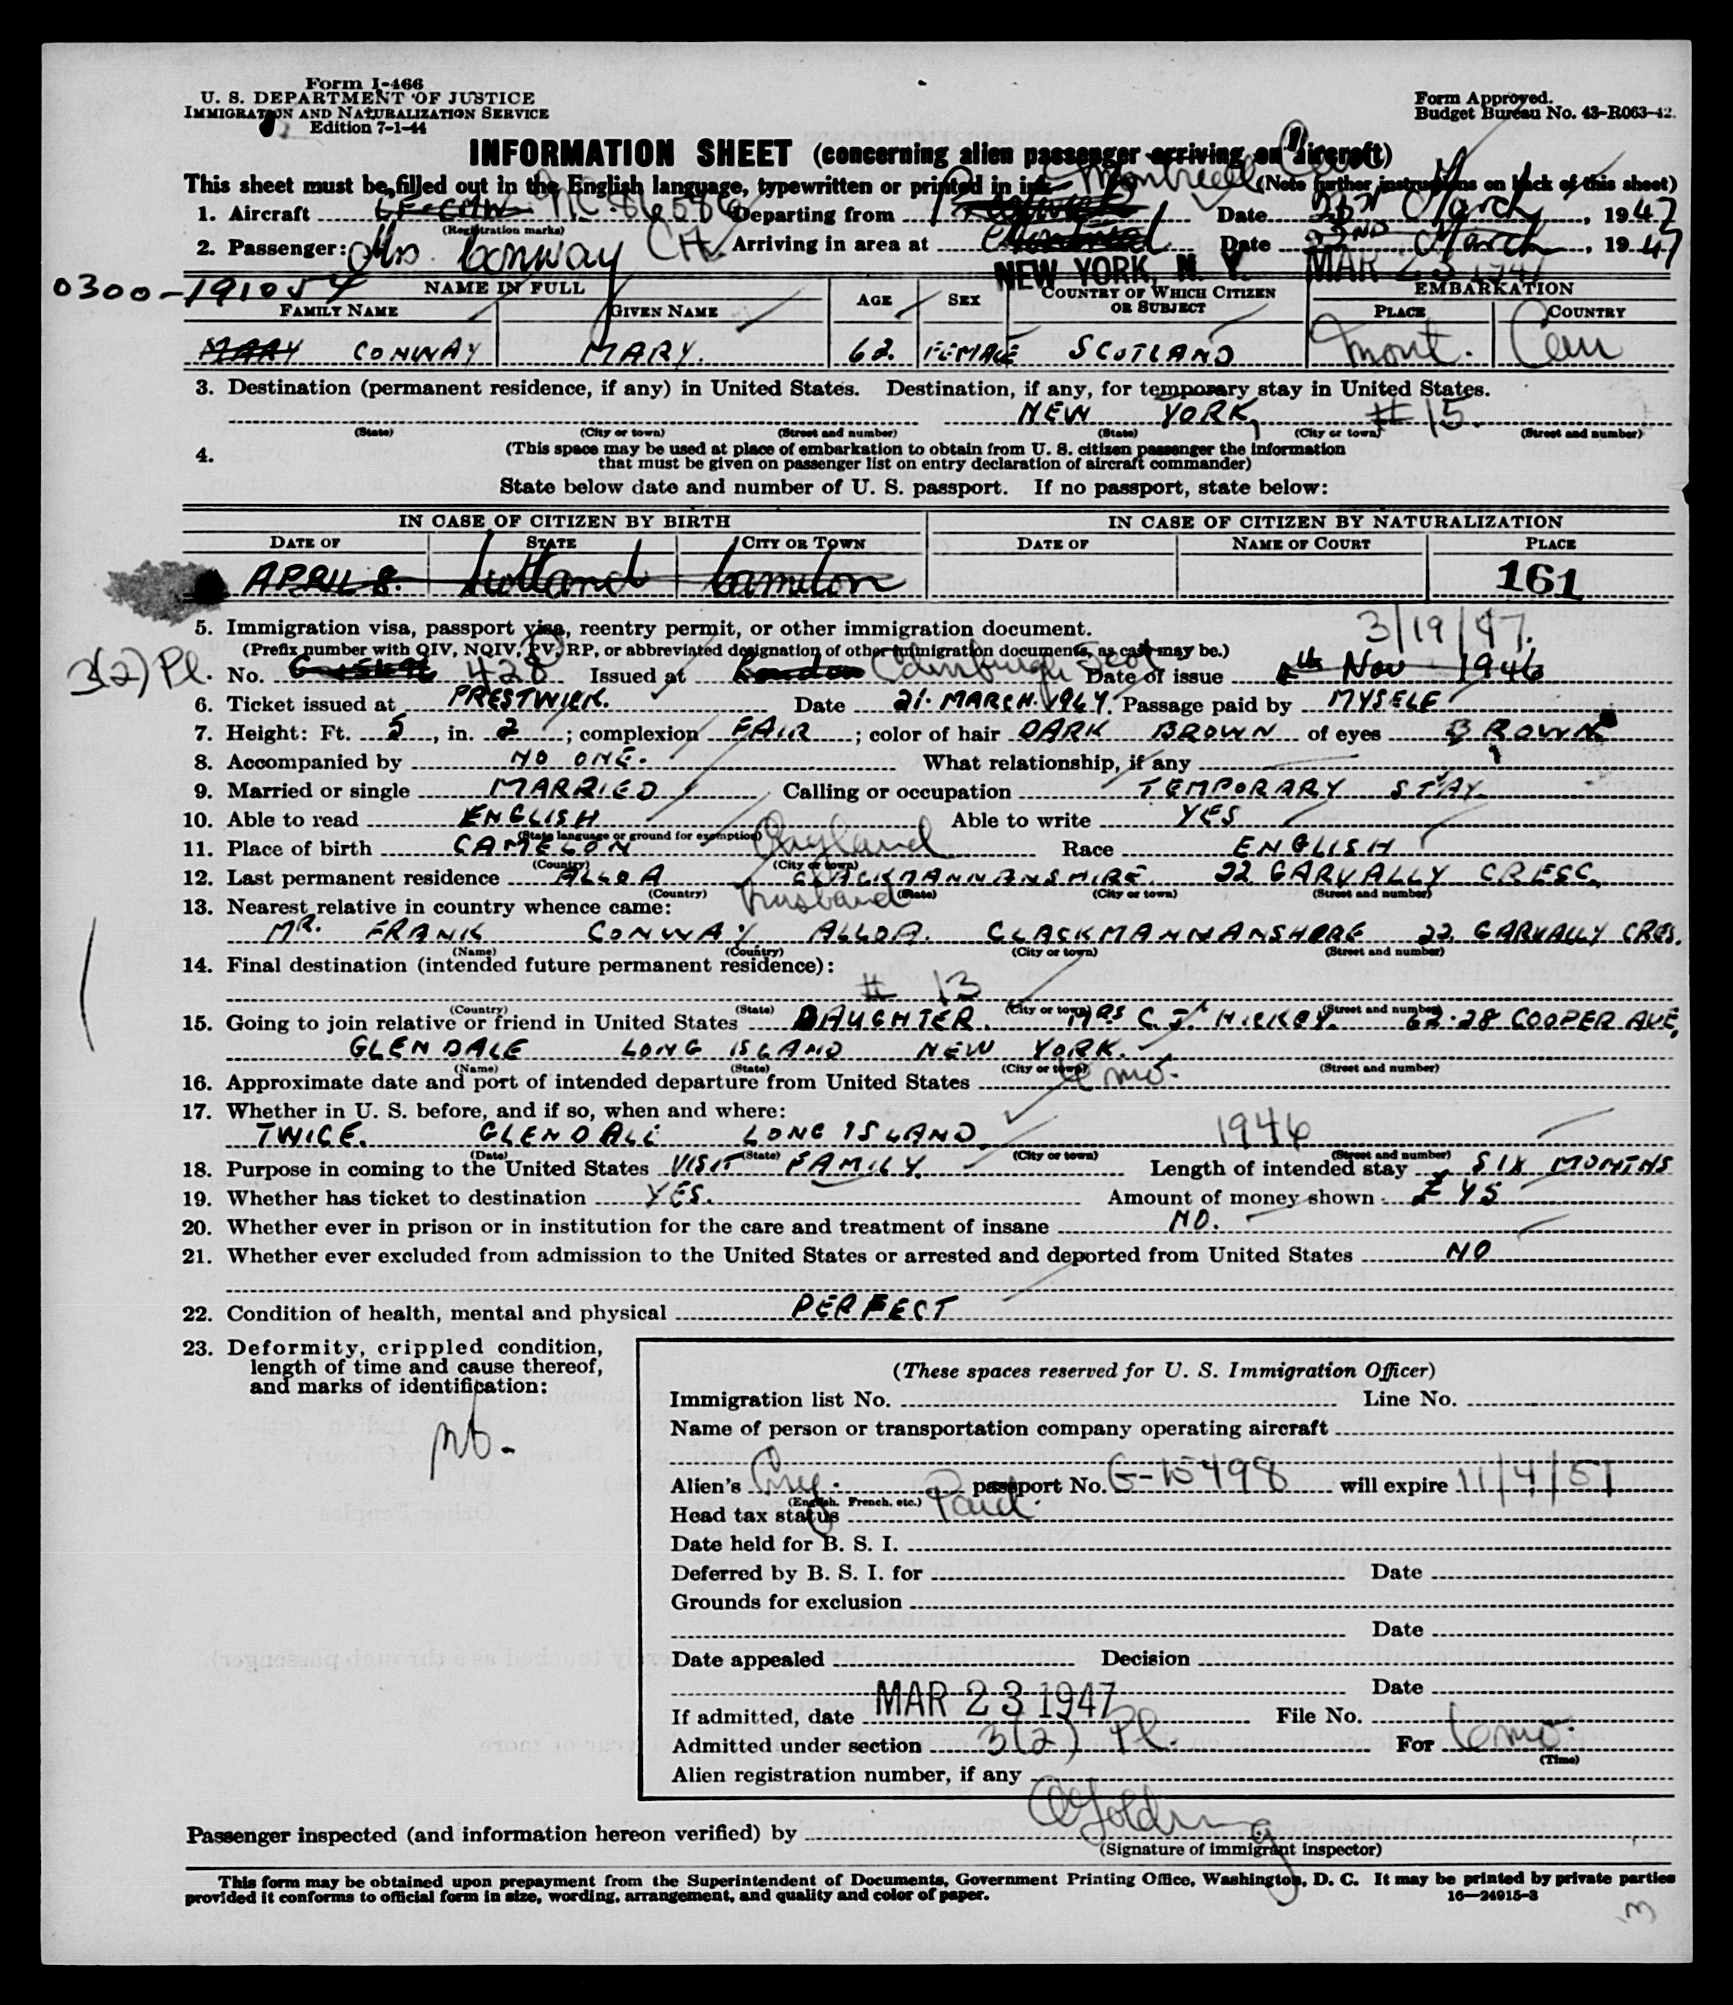 Form I-466
U. S. DEPARTMENT OF JUSTICE
IMMIGRATION AND NATURALIZATION SERVICE
Edition 7-1-44
Form Approved.
Budget Bureau No. 43-R063-42.
INFORMATION SHEET (concerning alien passenger arriving on aircraft)
This sheet must be filled out in the English language, typewritten or printed in ink Montreal (Note further instructions on back of this sheet)
1. Aircraft NC 86586 Departing from Date March, 1947
(Registration marks)
2. Passenger: Mrs. Conway Arriving in area at Montreal Date 22ND March, 1947
NEW YORK, N. Y. MAR 23 1947
0300-191054
NAME IN FULL AGE SEX COUNTRY OF WHICH CITIZEN OR SUBJECT EMBARKATION
FAMILY NAME GIVEN NAME PLACE COUNTRY
MARY CONWAY MARY. 62. FEMALE SCOTLAND Mont. Can
3. Destination (permanent residence, if any) in United States. Destination, if any, for temporary stay in United States.
NEW YORK, # 15.
(State) (City or town) (Street and number) (State) (City or town) (Street and number)
4. (This space may be used at place of embarkation to obtain from U. S. citizen passenger the information
that must be given on passenger list on entry declaration of aircraft commander)
State below date and number of U. S. passport. If no passport, state below:
IN CASE OF CITIZEN BY BIRTH IN CASE OF CITIZEN BY NATURALIZATION
DATE OF STATE CITY OR TOWN DATE OF NAME OF COURT PLACE
APRIL 8. Scotland Camelon 161
5. Immigration visa, passport visa, reentry permit, or other immigration document. 3/19/47.
(Prefix number with QIV, NQIV, PV, RP, or abbreviated designation of other immigration documents, as case may be.)
3(2) Pl. No. 428 Issued at London Edinburgh Scot Date of issue 4th Nov 1946
6. Ticket issued at PRESTWICK. Date 21. MARCH. 1947. Passage paid by MYSELF
7. Height: Ft. 5, in. 2; complexion FAIR; color of hair DARK BROWN of eyes BROWN
8. Accompanied by NO ONE. What relationship, if any
9. Married or single MARRIED Calling or occupation TEMPORARY STAY
10. Able to read ENGLISH Able to write YES
(State language or ground for exemption)
11. Place of birth CAMELON Race ENGLISH
(Country) (City or town)
12. Last permanent residence ALLOA CLACKMANNANSHIRE. 22 GARVALLY CRESC.
(Country) (State) (City or town) (Street and number)
13. Nearest relative in country whence came: husband
MR. FRANK CONWAY ALLOA. CLACKMANNANSHIRE 22. GARVALLY CRES.
(Name) (Country) (City or town) (Street and number)
14. Final destination (intended future permanent residence):
# 13
(Country) (State) (City or town) (Street and number)
15. Going to join relative or friend in United States DAUGHTER. MRS C. J. HICKEY. 62-28 COOPER AVE,
GLENDALE LONG ISLAND NEW YORK.
(Name) (State) (City or town) (Street and number)
16. Approximate date and port of intended departure from United States 6 mo.
17. Whether in U. S. before, and if so, when and where:
TWICE. GLENDALE LONG ISLAND 1946
(Date) (State) (City or town) (Street and number)
18. Purpose in coming to the United States VISIT FAMILY. Length of intended stay SIX MONTHS
19. Whether has ticket to destination YES. Amount of money shown £ 45
20. Whether ever in prison or in institution for the care and treatment of insane NO.
21. Whether ever excluded from admission to the United States or arrested and deported from United States NO
22. Condition of health, mental and physical PERFECT
23. Deformity, crippled condition,
length of time and cause thereof,
and marks of identification:
no.
(These spaces reserved for U. S. Immigration Officer)
Immigration list No. Line No.
Name of person or transportation company operating aircraft
Alien's Eng. passport No. G-15498 will expire 11/4/51
(English, French, etc.)
Head tax status Paid.
Date held for B. S. I.
Deferred by B. S. I. for Date
Grounds for exclusion
Date
Date appealed Decision
Date
If admitted, date MAR 23 1947 File No.
Admitted under section 3(2) Pl. For 6 mo.
(Time)
Alien registration number, if any
Passenger inspected (and information hereon verified) by Golding
(Signature of immigrant inspector)
This form may be obtained upon prepayment from the Superintendent of Documents, Government Printing Office, Washington, D. C. It may be printed by private parties
provided it conforms to official form in size, wording, arrangement, and quality and color of paper. 16—24915-3